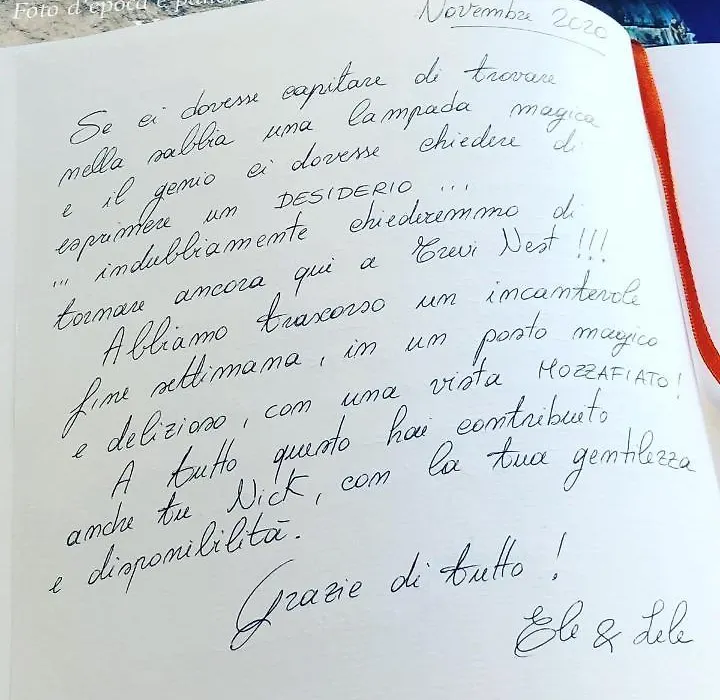 Foto d'epoca e
Novembre 2020
Se ci dovesse capitare di trovare
nella sabbia una lampada magica
e il genio ci dovesse chiedere di
esprimere un DESIDERIO ...
... indubbiamente chiederemmo di
tornare ancora qui a Trevi Nest !!!
Abbiamo trascorso un incantevole
fine settimana, in un posto magico
e delizioso, con una vista MOZZAFIATO!
A tutto questo hai contribuito
anche tu Nick, con la tua gentilezza
e disponibilità.
Grazie di tutto !
Ele & Lele